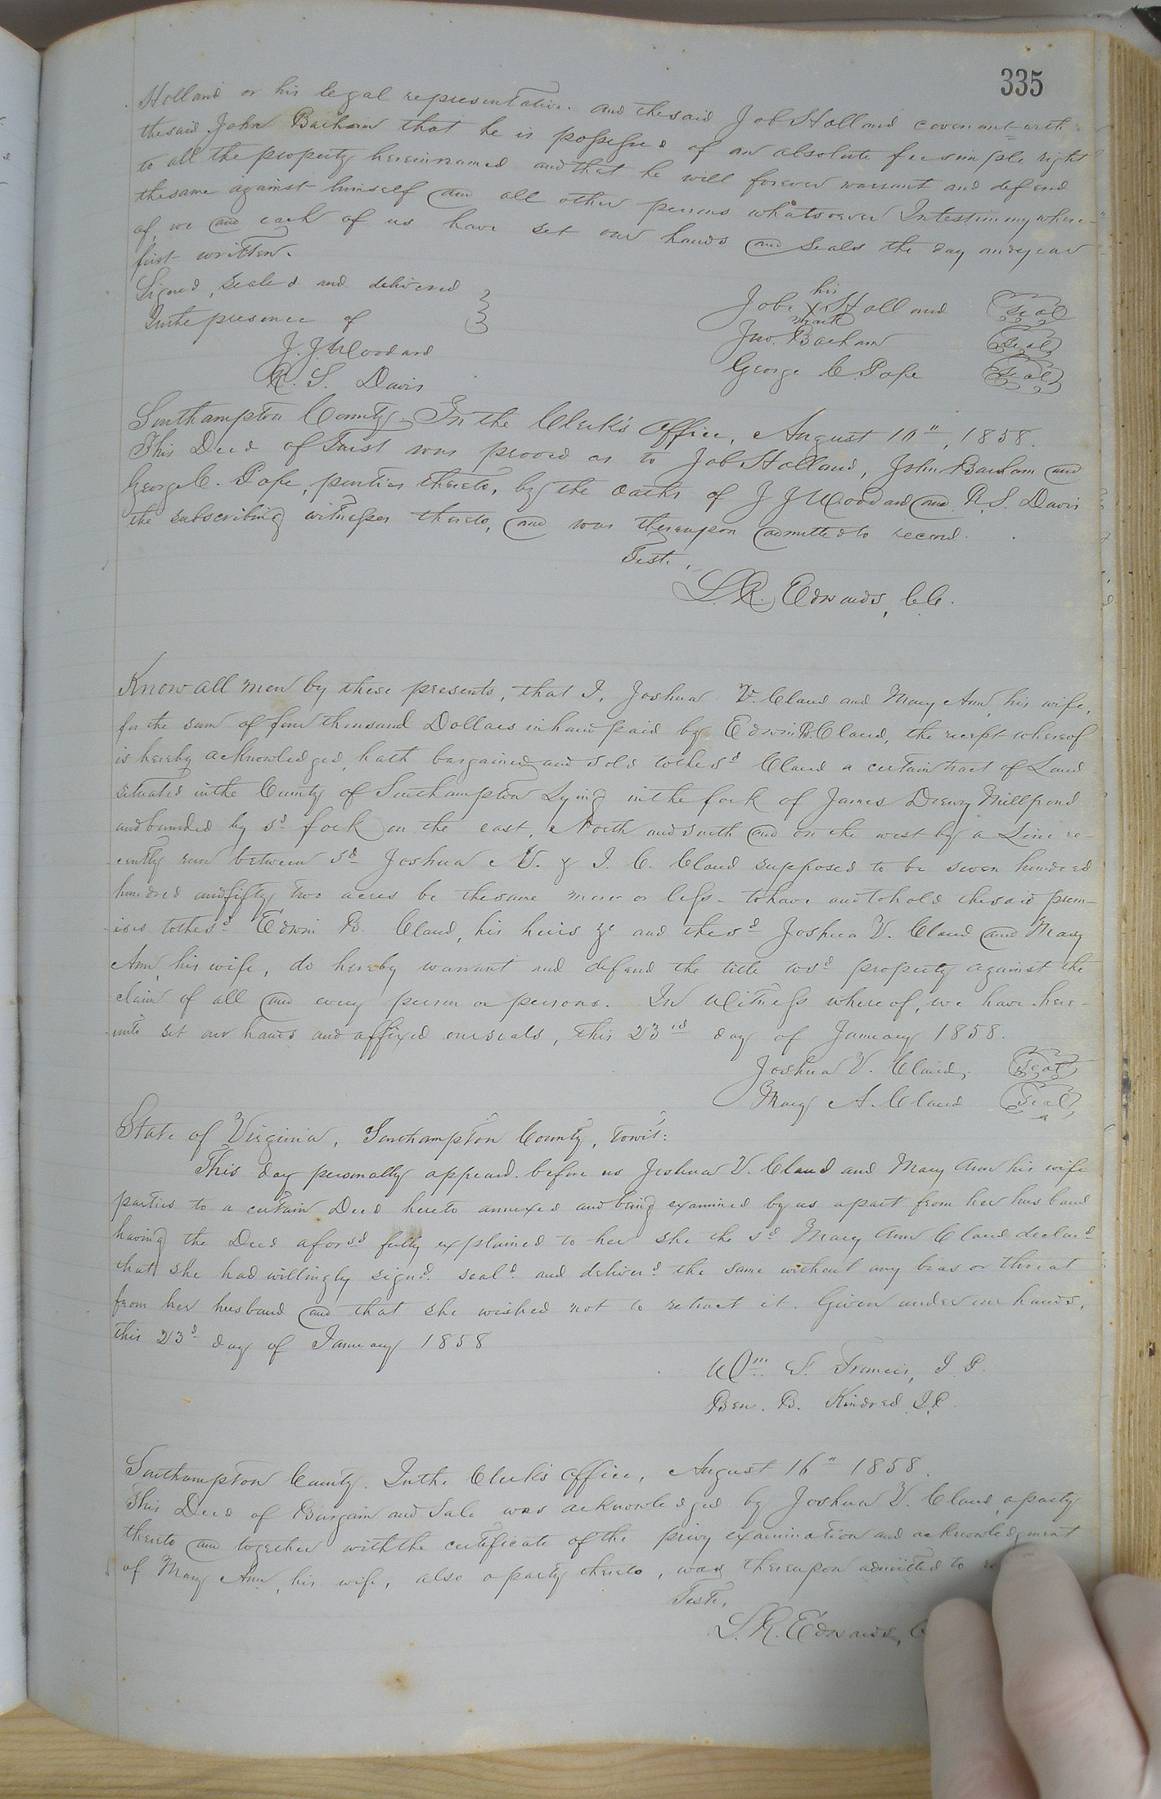 335
Holland or his legal representative. and thesaid Job Holland covenant with
thesaid John Barham that he is possessed of an absolute fee simple right
to all the property hereinnamed and that he will forever warrant and defend
thesame against himself and all other persons whatsoever Intestimony where-
of, we and each of us have set our hands and seals the day andyear
first written.
Signed, sealed and delivered
Inthe presence of
J. J. Woodard
R. S. Davis
his
Job X Holland Seal
mark
Jno. Barham Seal
George C. Pope Seal
Southampton County, In the Clerk's Office, August 10", 1858.
This Deed of Trust was proved as to Job Holland, John Barham and
George C. Pope, parties thereto, by the oaths of J J Woodard and R. S. Davis
the subscribing witnesses thereto, and was thereupon admitted to record.
Test.,
L. R. Edwards, C.C.
Know all men by these presents, that I, Joshua V. Claud and Mary Ann, his wife,
for the sum of four thousand Dollars in hand paid by Edwin B. Claud, the receipt whereof
is hereby acknowledged, hath bargained and sold tothe sd Claud a certain tract of Land
situated inthe County of Southampton Lying inthe fork of James Drewry Millpond
and bounded by sd fork on the east, North and south and on the west by a Line re-
cently run between sd Joshua V. & I. C. Claud supposed to be seven hundred
hundred and fifty two acres be thesame more or less - to have and to hold thesaid prem-
ises tothe sd Edwin B. Claud, his heirs &c and the sd Joshua V. Claud and Mary
Ann, his wife, do hereby warrant and defend the title to sd property against the
claim of all and every person or persons. In Witness whereof, we have here-
unto set our hands and affixed our seals, this 23rd day of January 1858.
Joshua V. Claud, Seal
Mary A. Claud Seal
State of Virginia, Southampton County, towit:
This day personally appeard before us Joshua V. Claud and Mary Ann his wife
parties to a certain Deed hereto annexed and being examined by us apart from her husband
having the Deed aforsd fully explained to her she the sd Mary Ann Claud declard
that she had willingly signd. seald and deliverd the same without any bias or threat
from her husband and that she wished not to retract it. Given under our hands,
this 23d day of January 1858
Wm. S. Francis, J. P.
Ben. B. Kindred J.P.
Southampton County. Inthe Clerk's Office, August 16" 1858.
This Deed of Bargain and Sale was acknowledged by Joshua V. Claud, a party
thereto and together with the certificate of the privy examination and acknowledgment
of Mary Ann, his wife, also a party thereto, was thereupon admitted to
Teste,
L. R. Edwards, C